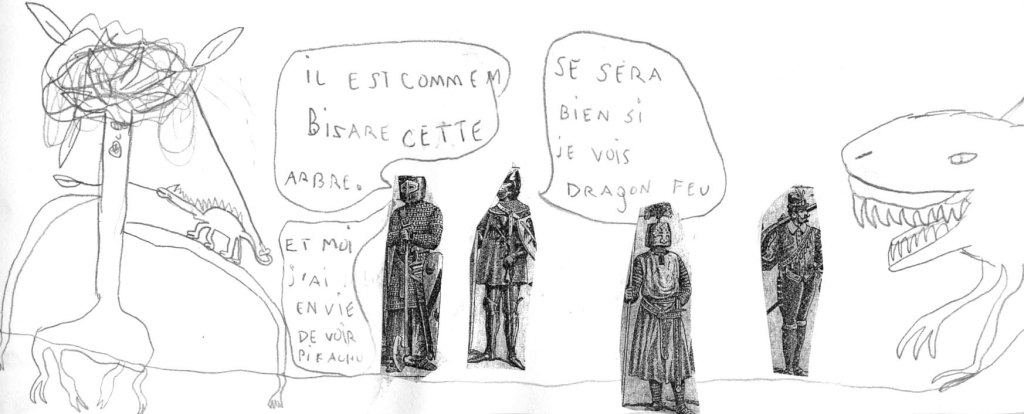 IL EST COMMEM
BISARE CETTE
ARBRE.
ET MOI
J'AI
ENVIE
DE VOIR
PIKACHU
SE SERA
BIEN SI
JE VOIS
DRAGON FEU